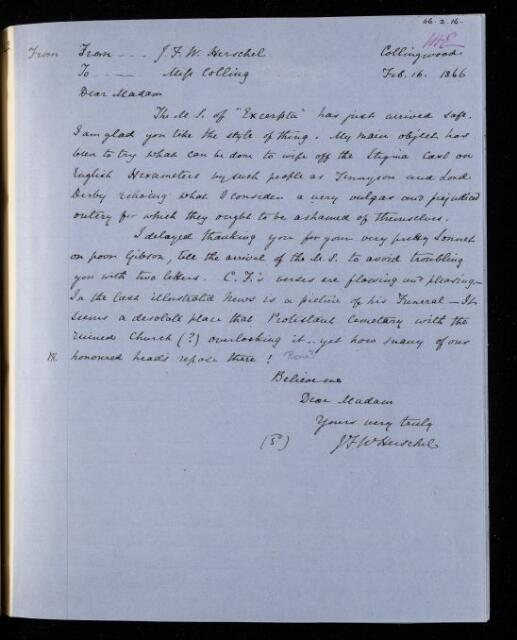 66.2.16.
From From - - - J.F.W. Herschel Collingwood
To - - - - Miss Colling Feb. 16. 1866
Dear Madam
The M.S. of "Excerpta" has just arrived safe.
I am glad you like the style of thing. My main object has
been to try what can be done to wipe off the Stigma cast on
English Hexameters by such people as Tennyson and Lord
Derby echoing what I consider a very vulgar and prejudiced
outcry for which they ought to be ashamed of themselves.
I delayed thanking you for your very pretty Sonnet
on poor Gibson, till the arrival of the M.S. to avoid troubling
you with two letters. C.F.'s verses are flowing and pleasing
In the last illustrated News is a picture of his Funeral — It
seems a desolate place that Protestant Cemetary with the
ruined Church (?) overlooking it .. yet how many of our
honoured heads repose there!
Believe me
Dear Madam
Yours very truly
(S?) J F W Herschel